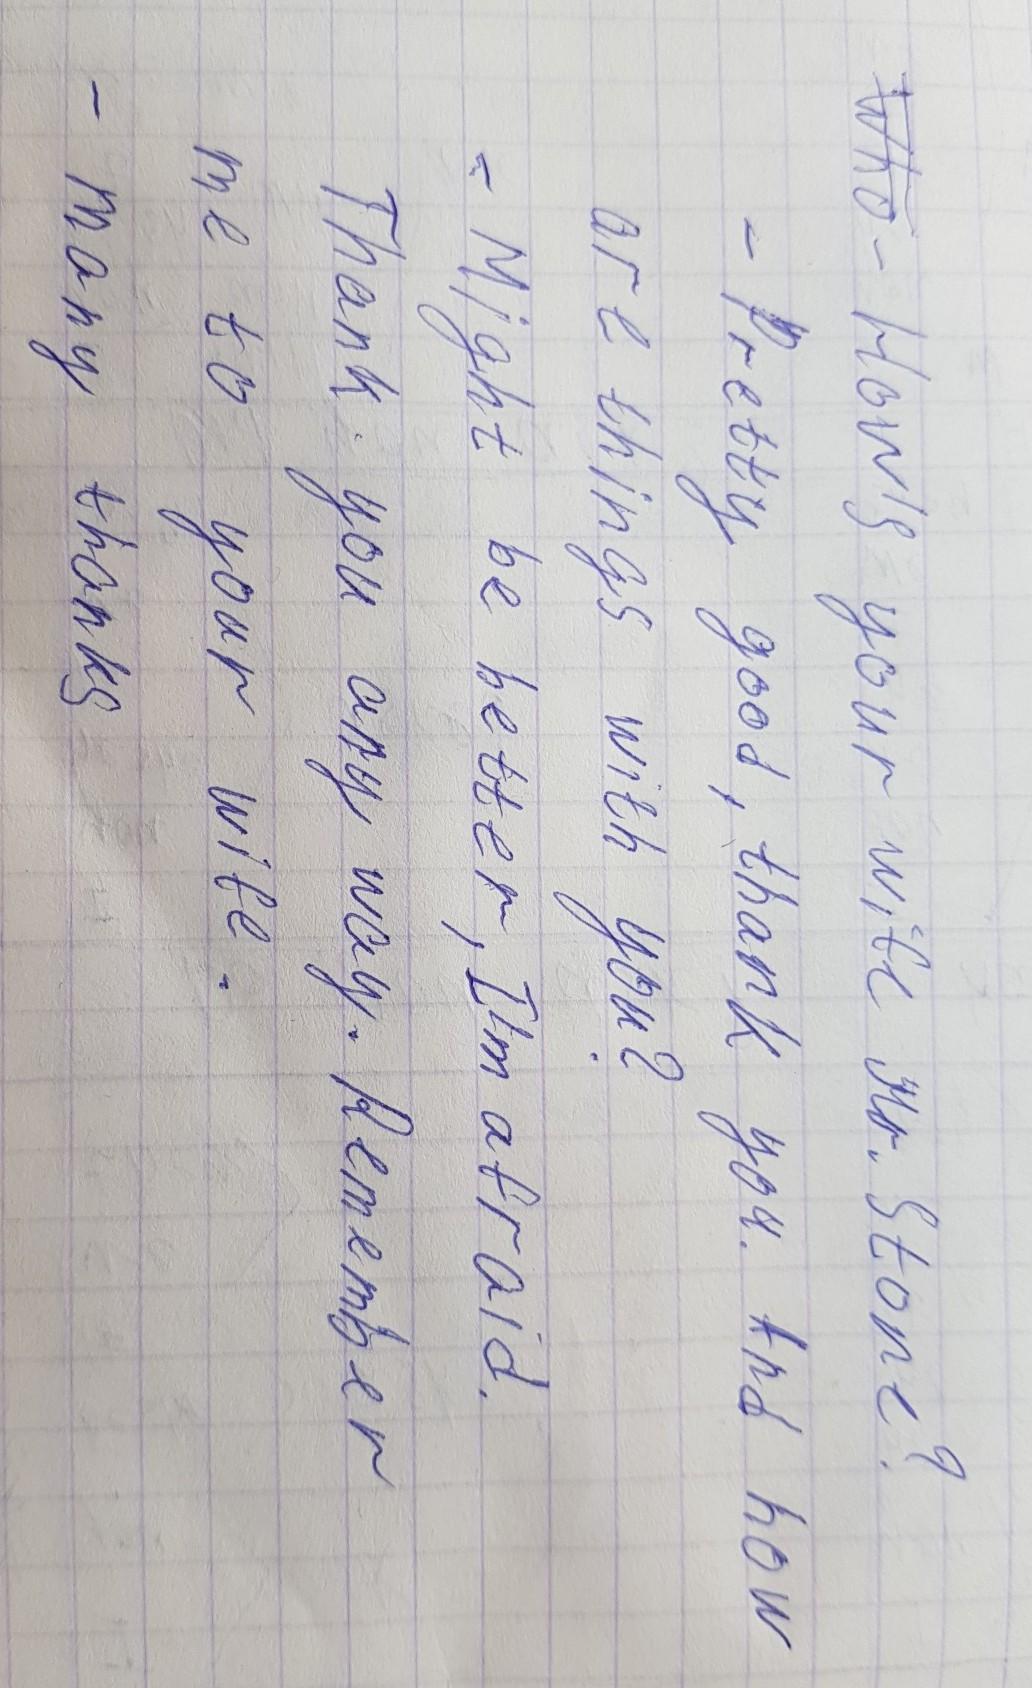 Who - How's your wife Mr. Stone?
- Pretty good, thank you. And how
are things with you?
- Might be better, I'm afraid.
Thank you any way. Remember
me to your wife.
- many thanks